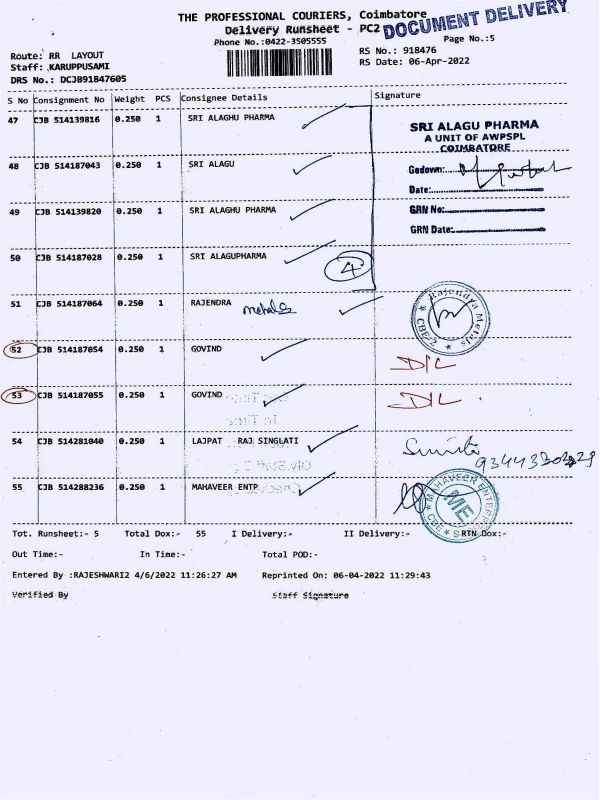 THE PROFESSIONAL COURIERS, Coimbatore
DOCUMENT DELIVERY
Delivery Runsheet - PC2
Phone No.:0422-3505555
Page No.:5
Route: RR LAYOUT
RS No.: 918476
Staff: .KARUPPUSAMI
RS Date: 06-Apr-2022
DRS No.: DCJB91847605
S No Consignment No Weight PCS Consignee Details Signature
47 CJB 514139816 0.250 1 SRI ALAGHU PHARMA
SRI ALAGU PHARMA
A UNIT OF AWPSPL
COIMBATORE
48 CJB 514187043 0.250 1 SRI ALAGU
Godown:
Date:
49 CJB 514139820 0.250 1 SRI ALAGHU PHARMA
GRN No:
GRN Date:
50 CJB 514187028 0.250 1 SRI ALAGUPHARMA
4
51 CJB 514187064 0.250 1 RAJENDRA metals
Rajendra Metals
CBE-2
52 CJB 514187054 0.250 1 GOVIND D/L
53 CJB 514187055 0.250 1 GOVIND D/L
54 CJB 514281040 0.250 1 LAJPAT RAJ SINGLATI
55 CJB 514288236 0.250 1 MAHAVEER ENTP
ME
Tot. Runsheet:- 5 Total Dox:- 55 I Delivery:- II Delivery:- RTN Dox:-
Out Time:- In Time:- Total POD:-
Entered By :RAJESHWARI2 4/6/2022 11:26:27 AM Reprinted On: 06-04-2022 11:29:43
Verified By Staff Signature